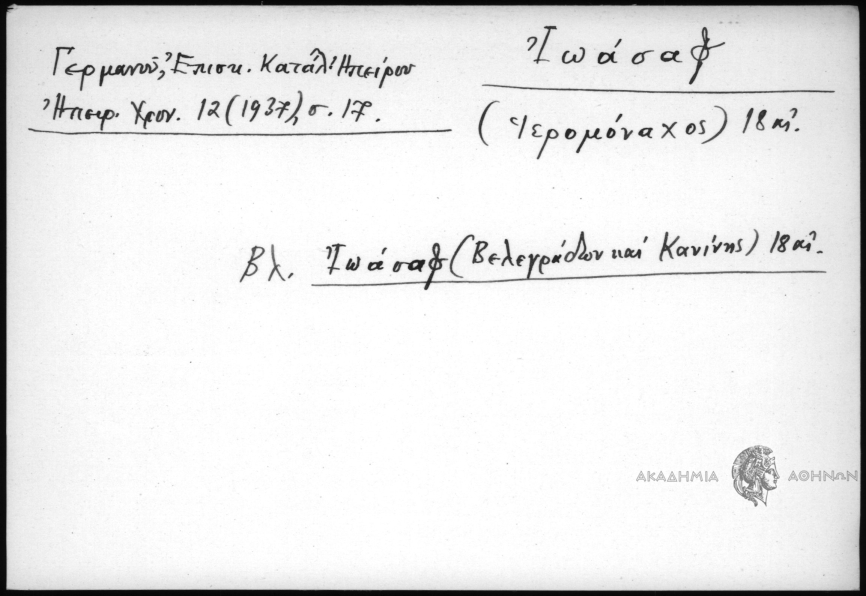 Γερμανοῦ, Ἐπισκ. Κατάλ. Ἠπείρου
Ἠπειρ. Χρον. 12 (1937), σ. 17.
Ἰωάσαφ
(Ἱερομόναχος) 18 αἰ.
Βλ. Ἰωάσαφ (Βελεγράδων καὶ Κανίνης) 18 αἰ.
ΑΚΑΔΗΜΙΑ ΑΘΗΝΩΝ